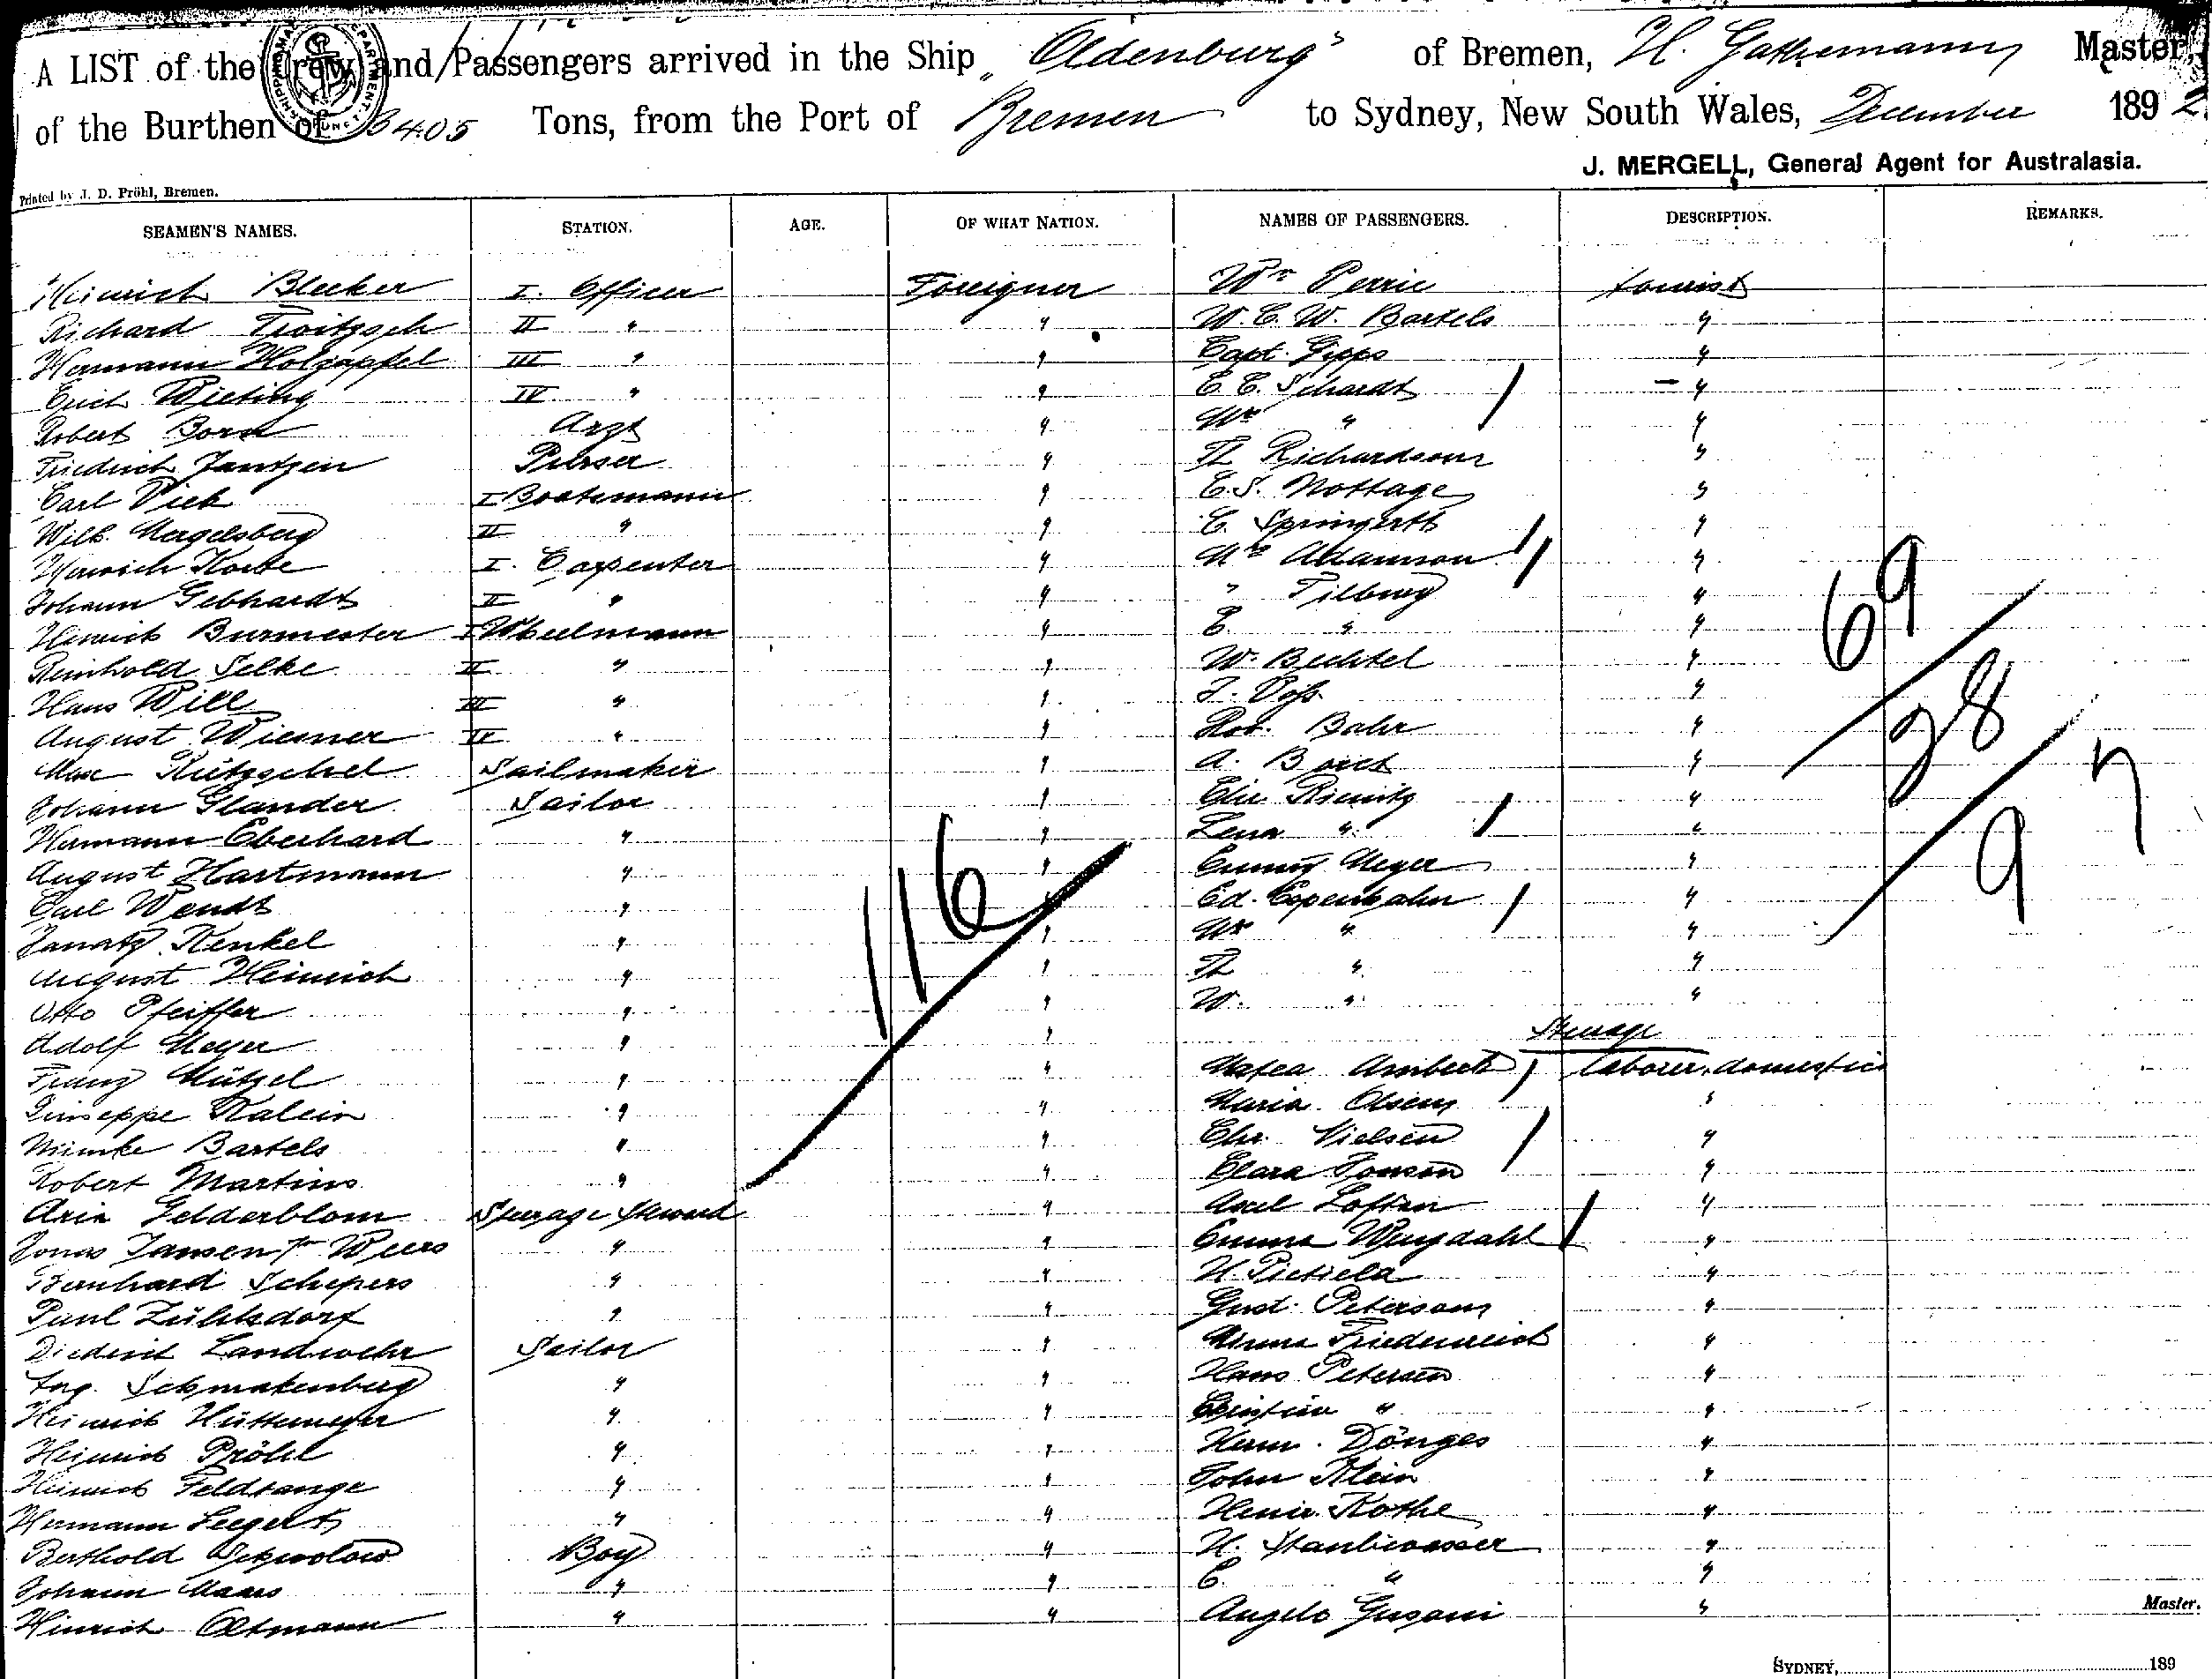 A LIST of the Crew and Passengers arrived in the Ship „Oldenburg" of Bremen, H. Gathemann Master,
of the Burthen of 3405 Tons, from the Port of Bremen to Sydney, New South Wales, December 1892
J. MERGELL, General Agent for Australasia.
Printed by J. D. Pröhl, Bremen.
SEAMEN'S NAMES. STATION. AGE. OF WHAT NATION. NAMES OF PASSENGERS. DESCRIPTION. REMARKS.
Heinrich Bleeker I. Officer Foreigner Wm Perrie tourist
Richard Troitzsch II " " W. C. W. Bartels "
Hermann Holzapfel III " " Capt. Gipps "
Erich Wieting IV " " C. C. Schardt "
Robert Born Arzt " Mrs " "
Friedrich Jantzen Purser " Th Richardson "
Carl Vieb I Boatsmann " C. S. Nottage "
Wilh. Mergelsberg II " " C. Springerth "
Hinrich Korte I. Carpenter " Mrs Adamson "
Johann Gebhardt II " " " Tilburg "
Hinrich Burmester I Wheelmann " E. " "
Reinhold Selke II " " W. Bechtel "
Hans Will III " " J. Voß "
August Wiemer IV " " Rob. Bahr "
Max Kützschel Sailmaker " A. Borch "
Johann Glander Sailor " Chr Rienitz "
Hermann Eberhard " " Lena " "
August Hartmann " " Emmy Meyer "
Carl Wendt " " Ed. Copenhahn "
Kenkel " " Mrs " "
August Heinrich " " Th " "
Otto Pfeiffer " " W. " "
Adolf Meyer " " Steerage
Franz Mützel " " Ambert laborer, domestic
Giuseppe Kalein " " Maria Olsen "
Bartels " " Chr. Nielsen "
Robert Martins " " Clara Jonson "
Arie Gelderblom Steerage Steward " Axel Loften "
Jonas Jansen Weers " " Emma Wengdahl "
Bernhard Schepers " " H. Pietiela "
Paul Zühlsdorf " " Gust. Peterson "
Diedrich Landwehr Sailor " Minna Friedenreich "
Aug. Schmakenberg " " Hans Petersen "
Heinrich Hüttemeyer " " Christine " "
Heinrich Pröhl " " Herm. Dönges "
Heinrich Feldtange " " John Klein "
Hermann Seegert " " Heinr. Kothe "
Berthold Boy " H. Staubwasser "
Johann Maass " " C. " "
Hinrich Oltmann " " Angelo Gusani "
116
69
28
97
Master.
SYDNEY, 189